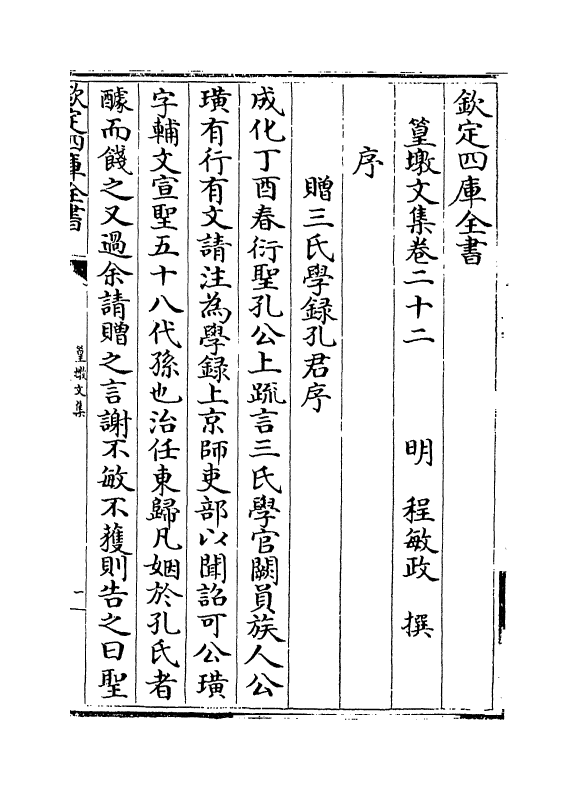 欽定四庫全書
篁墩文集卷二十二　　　明　程敏政　撰
序
贈三氏學録孔君序
成化丁酉春衍聖孔公上疏言三氏學官闕員族人公
璜有行有文請注為學録上京師吏部以聞詔可公璜
字輔文宣聖五十八代孫也治任東歸凡姻於孔氏者
醵而餞之又過余請贈之言謝不敏不獲則告之曰聖
欽定四庫全書
篁墩文集
一